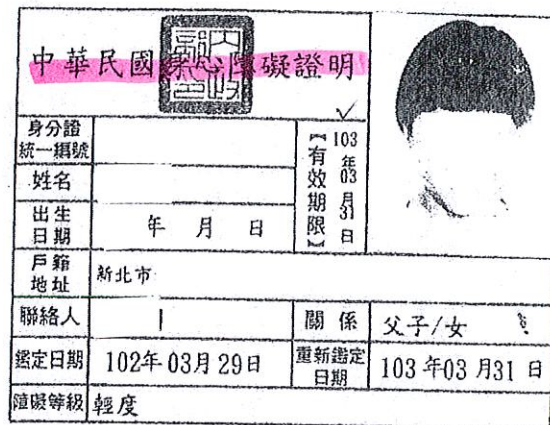 中華民國身心障礙證明
身分證
統一編號
【有效期限】
103
年
03
月
31
日
姓名
出生
日期
年 月 日
戶籍
地址
新北市
聯絡人
關係
父子/女
鑑定日期
102年03月29日
重新鑑定
日期
103年03月31日
障礙等級
輕度